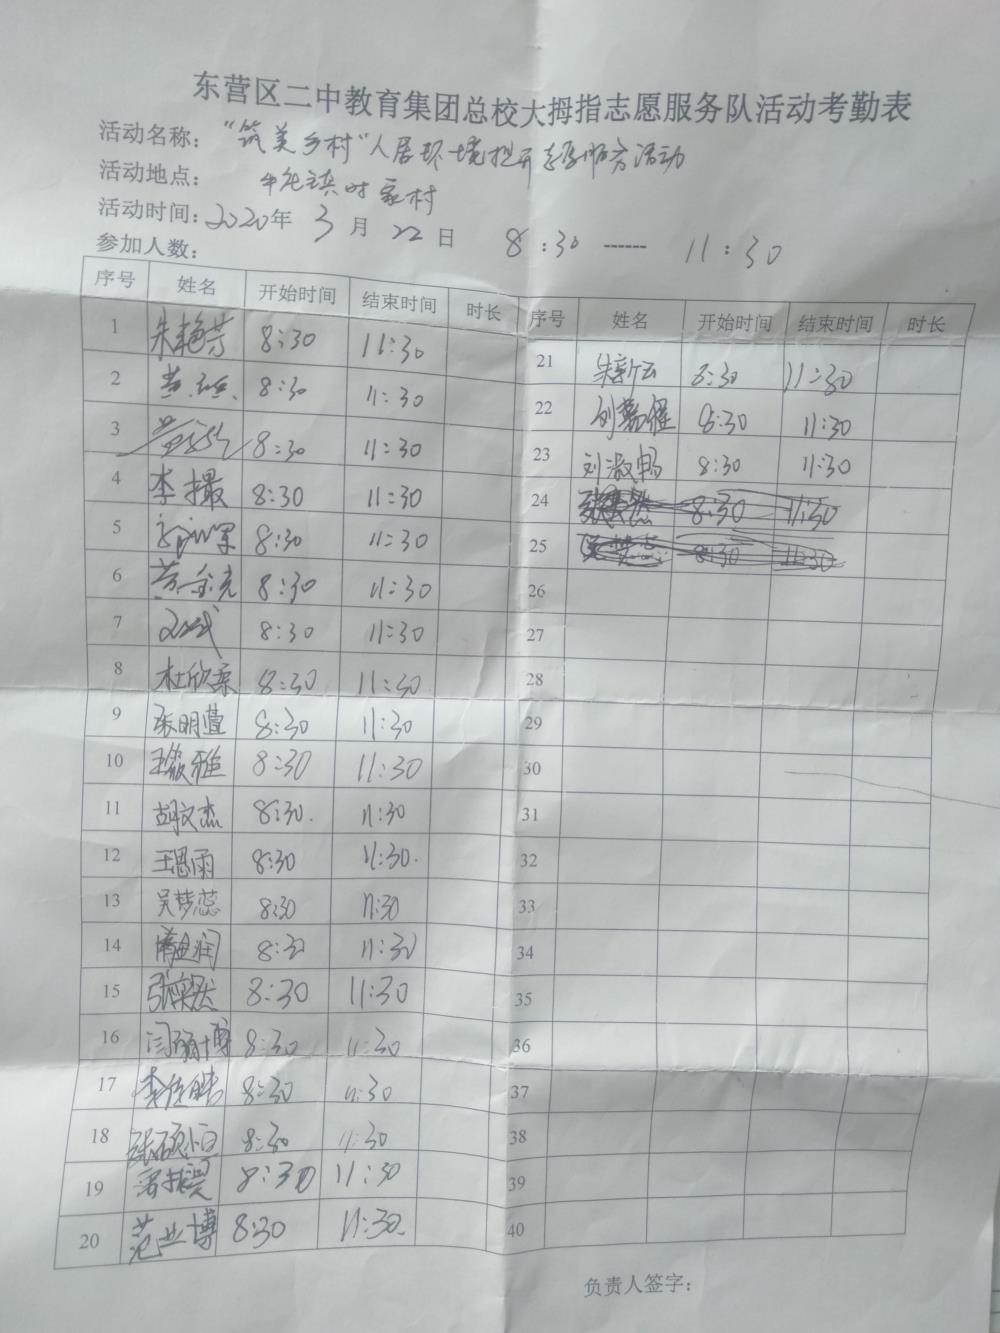 东营区二中教育集团总校大拇指志愿服务队活动考勤表
活动名称："筑美乡村"人居环境提升志愿服务活动
活动地点：牛庄镇时家村
活动时间：2020年 3 月 22 日 8:30 ------ 11:30
参加人数：
序号 姓名 开始时间 结束时间 时长
1 朱艳芳 8:30 11:30
2 8:30 11:30
3 8:30 11:30
4 李撮 8:30 11:30
5 8:30 11:30
6 8:30 11:30
7 8:30 11:30
8 杜欣柔 8:30 11:30
9 张明萱 8:30 11:30
10 王筱雅 8:30 11:30
11 胡文杰 8:30. 11:30
12 王思雨 8:30 11:30.
13 吴梦蕊 8:30 11:30
14 8:30 11:30
15 8:30 11:30
16 8:30 11:30
17 8:30 11:30
18 张硕恒 8:30 11:30
19 8:30 11:30
20 范业博 8:30 11:30
序号 姓名 开始时间 结束时间 时长
21 朱新云 8:30 11:30
22 8:30 11:30
23 刘淑畅 8:30 11:30
24 8:30 11:30
25 8:30 11:30
26
27
28
29
30
31
32
33
34
35
36
37
38
39
40
负责人签字：